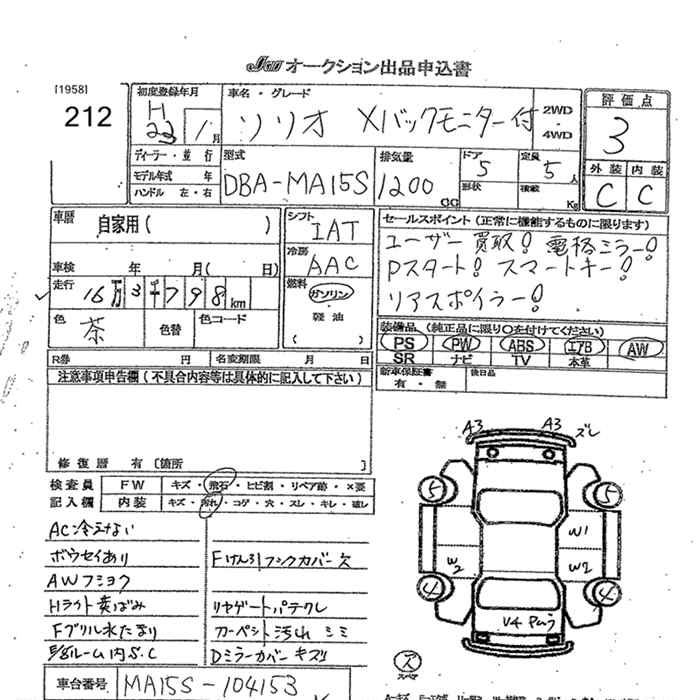 JU オークション出品申込書
[1958]
212
初度登録年月
H 22年 1月
車名・グレード
ソリオ Xバックモニター付
2WD・4WD
評価点
3
ディーラー・並行
モデル年式 年
ハンドル 左・右
型式
DBA-MA15S
排気量
1200 cc
ドア 5
形状
定員 5人
積載 Kg
外装 内装
C C
車歴
自家用( )
シフト
IAT
冷房
AAC
燃料
ガソリン
軽油
( )
セールスポイント(正常に機能するものに限ります)
ユーザー買取! 電格ミラー!
Pスタート! スマートキー!
リアスポイラー!
車検 年 月( 日)
走行 16万3千798km
色 茶
色替
色コード
装備品(純正品に限り○を付けてください)
PS PW ABS エアB AW
SR ナビ TV 本革
R券 円
名変期限 月 日
新車保証書
有・無
後日品
注意事項申告欄(不具合内容等は具体的に記入して下さい)
修復歴 有〔箇所
検査員
記入欄
FW キズ・飛石・ヒビ割・リペア跡・×要
内装 キズ・汚れ・コゲ・穴・スレ・キレ・破レ
AC冷えない
ボウセイあり
Fけん引フックカバー欠
AWフショク
Hライト黄ばみ
リヤゲートパテクレ
Fブリル水たまり
カーペント汚れ シミ
E/gルーム内S.C
Dミラーカバーキズ
車台番号 MA15S-104153
A3 A3 ズレ
5 5
W1
W2 W2
4 4
U4 Pムラ
ス
スペア